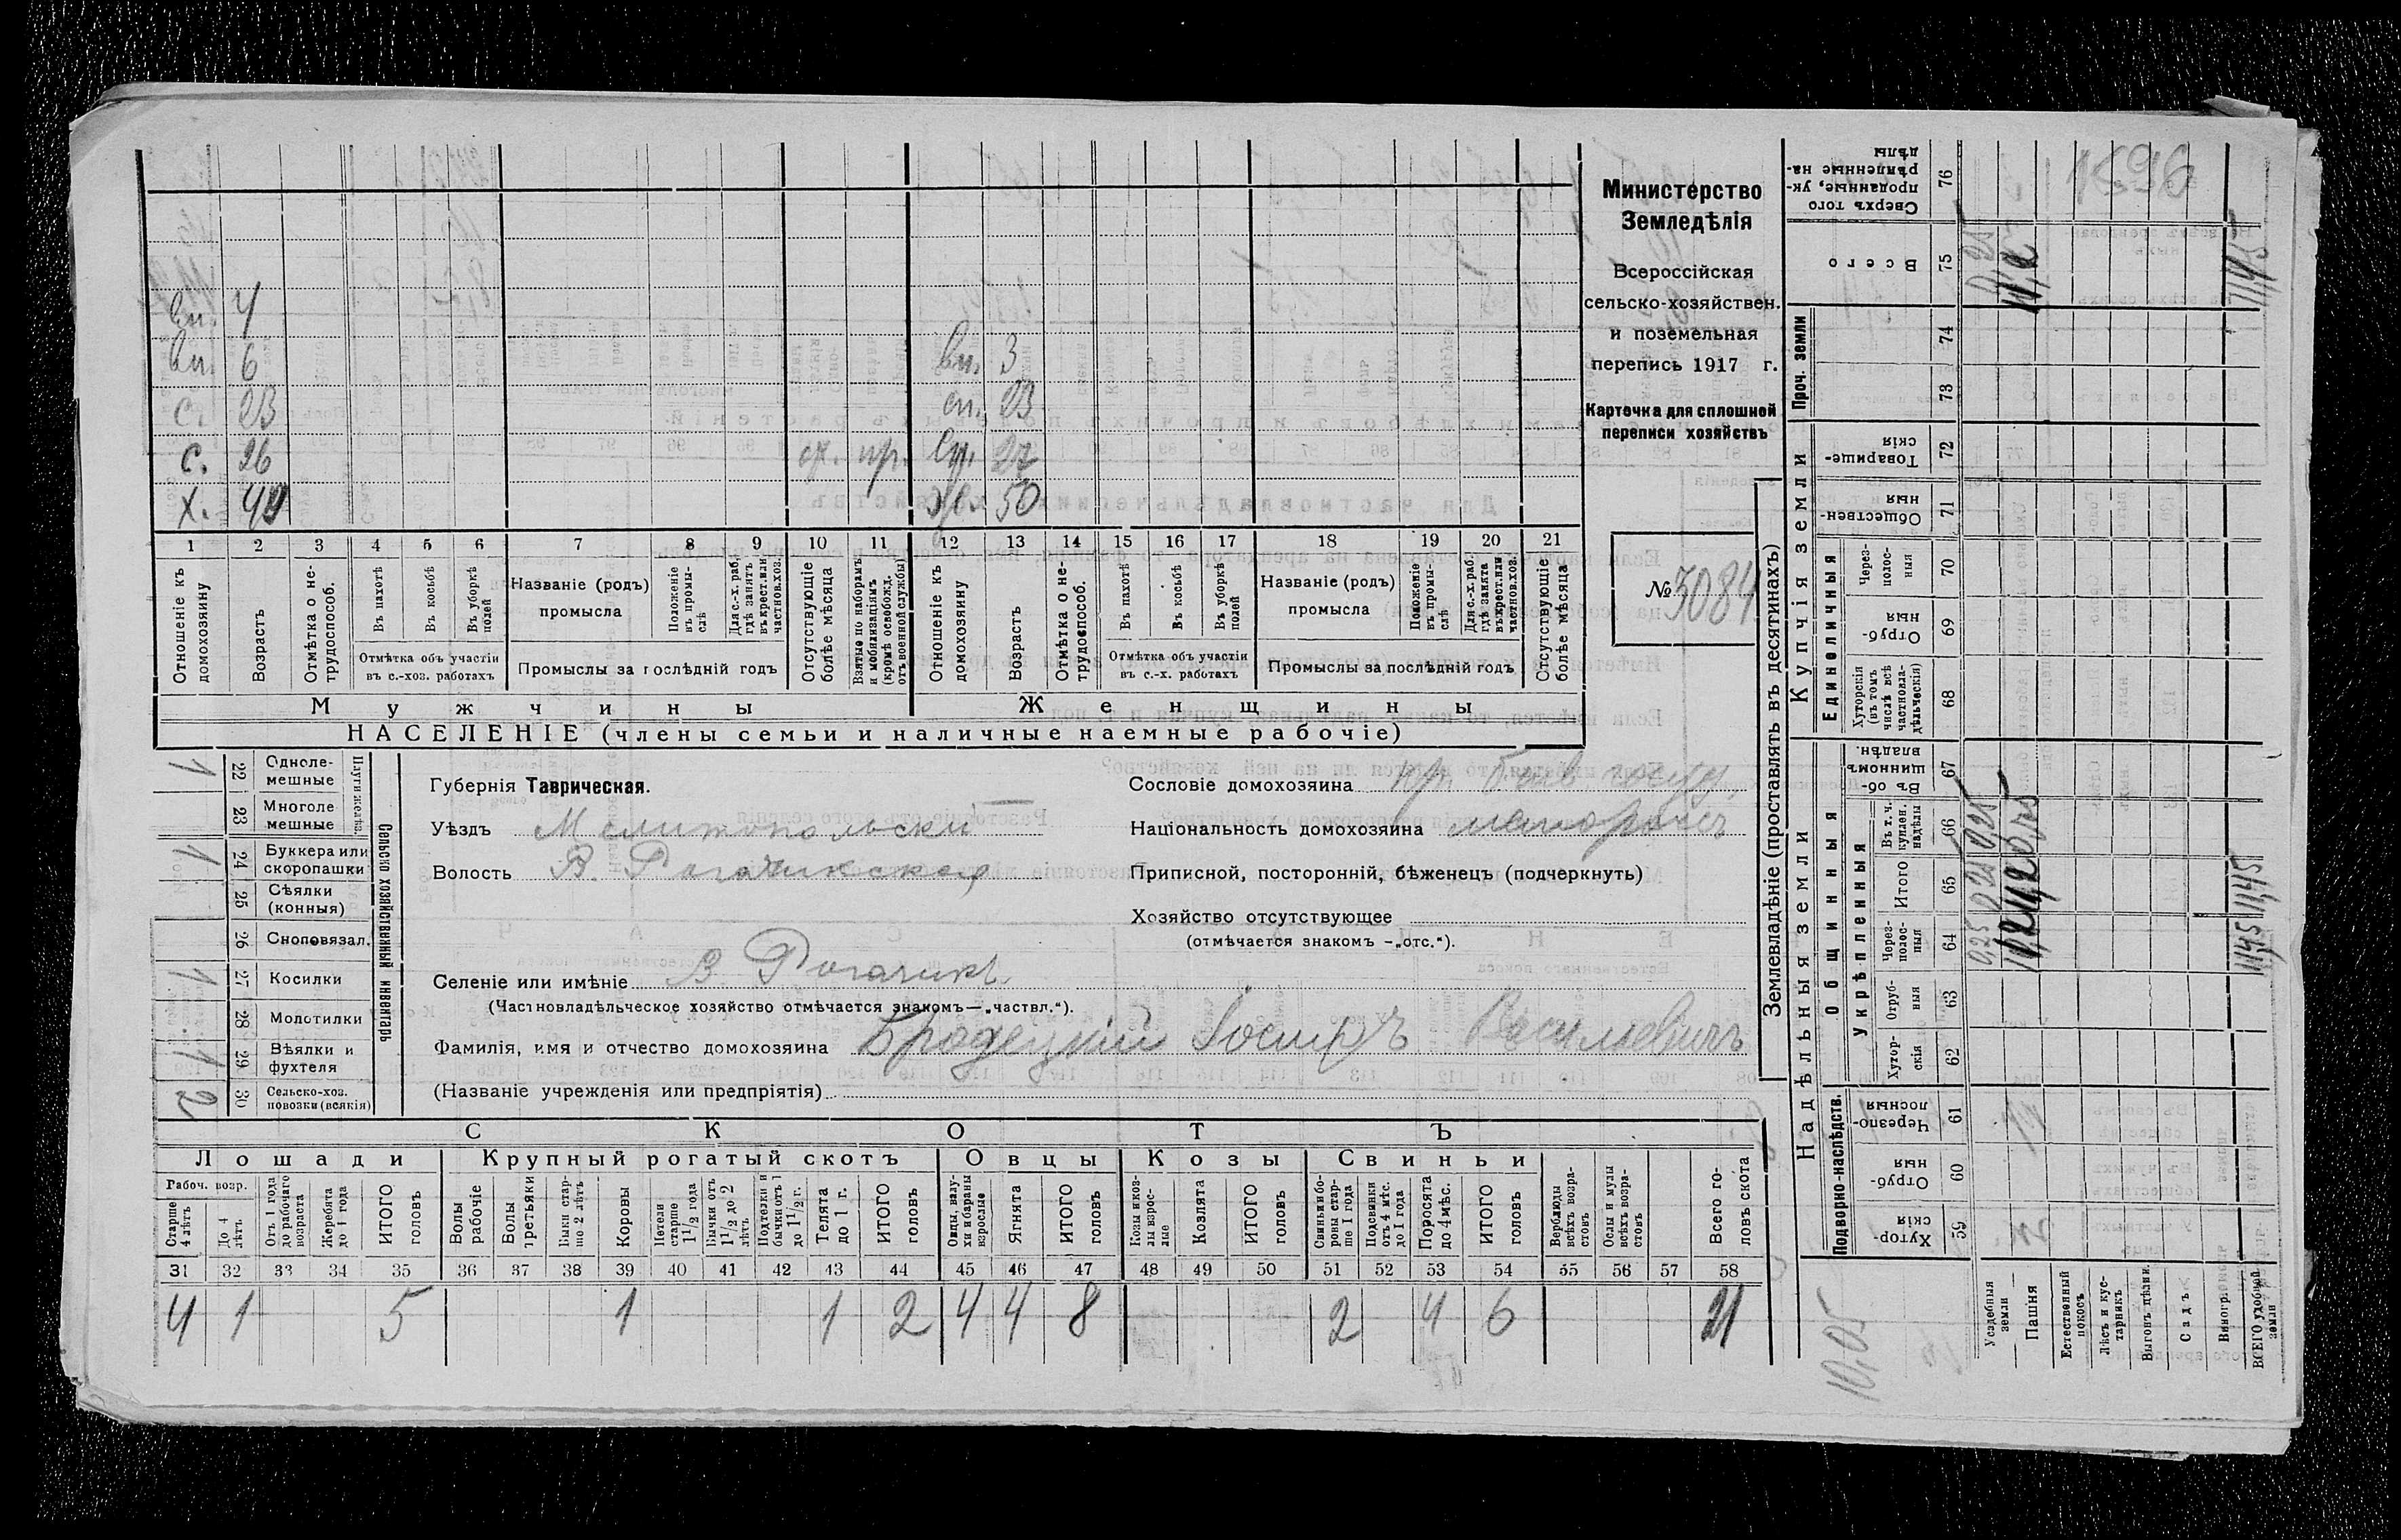 вн. 4
вн. 6 вн. 3
с. 23 сн. 23
с. 26 пр. сн. 27
х. 49 50
1 2 3 4 5 6 7 8 9 10 11 12 13 14 15 16 17 18 19 20 21
Отношеніе къ домохозяину
Возрастъ
Отмѣтка о нетрудоспособ.
Въ пахотѣ
Въ косьбѣ
Въ уборкѣ полей
Отмѣтка объ участіи
въ с.-хоз. работахъ
Названіе (родъ)
промысла
Положеніе въ промыслѣ
Для с.-х. раб. гдѣ занятъ въ крест. или частнов. хоз.
Промыслы за послѣдній годъ
Отсутствующіе болѣе мѣсяца
Взятые по наборамъ и мобилизаціямъ (кромѣ освобожд. отъ военной службы)
Отношеніе къ домохозяину
Возрастъ
Отмѣтка о не-трудоспособ.
Въ пахотѣ
Въ косьбѣ
Въ уборкѣ полей
Отмѣтка объ участіи
въ с.-х. работахъ
Названіе (родъ)
промысла
Положеніе въ промыслѣ
Для с.-х. раб. гдѣ занята въ крест. или частнов. хоз.
Промыслы за послѣдній годъ
Отсутствующіе болѣе мѣсяца
Мужчины Женщины
НАСЕЛЕНІЕ (члены семьи и наличные наемные рабочіе)
Министерство
Земледѣлія
Всероссійская
сельско-хозяйствен.
и поземельная
перепись 1917 г.
Карточка для сплошной
переписи хозяйствъ
№ 3084
Сельско хозяйственный инвентарь
Плуги желѣз.
Одноле-мешные 22 1
Многоле мешные 23
Буккера или скоропашки 24 1
Сѣялки (конныя) 25
Сноповязал. 26
Косилки 27 1
Молотилки 28
Вѣялки и фухтеля 29 1
Сельско-хоз. повозки (всякія) 30 2
Губернія Таврическая.
Уѣздъ Мелитопольскій
Волость В. Рогачикская
Селеніе или имѣніе В. Рогачикъ
(Частновладѣльческое хозяйство отмѣчается знакомъ—„частвл.“).
Фамилія, имя и отчество домохозяина Бродецкій Іосифъ Васильевичъ
(Названіе учрежденія или предпріятія)
Сословіе домохозяина кр. быв. госуд.
Національность домохозяина малороссъ
Приписной, посторонній, бѣженецъ (подчеркнуть)
Хозяйство отсутствующее
(отмѣчается знакомъ -„отс.“).
СКОТЪ
Лошади Крупный рогатый скотъ Овцы Козы Свиньи
Рабоч. возр.
Старше 4 лѣтъ
До 4 лѣтъ
Отъ 1 года до рабочаго возраста
Жеребята до 1 года
ИТОГО головъ
Волы рабочіе
Волы третьяки
Быки старше 2 лѣтъ
Коровы
Нетели старше 1 1/2 года
Бычки отъ 1 1/2 до 2 лѣтъ
Подтелки и бычки отъ 1 до 1 1/2 г.
Телята до 1 г.
ИТОГО головъ
Овцы, валухи и бараны взрослые
Ягнята
ИТОГО головъ
Козы и козлы взрослые
Козлята
ИТОГО головъ
Свиньи и боровы старше 1 года
Подсвинки отъ 4 мѣс. до 1 года
Поросята до 4 мѣс.
ИТОГО головъ
Верблюды всѣхъ возрастовъ
Ослы и мулы всѣхъ возрастовъ
Всего головъ скота
31 32 33 34 35 36 37 38 39 40 41 42 43 44 45 46 47 48 49 50 51 52 53 54 55 56 57 58
4 1 5 1 1 2 4 4 8 2 4 6 21
Землевладѣніе (проставлять въ десятинахъ)
Надѣльныя земли Купчія земли Проч. земли
Подворно-наслѣдств. Общинныя
Укрѣпленныя
Единоличныя
Хуторскія 59
Отрубныя 60
Черезполосныя 61
Хуторскія 62
Отрубныя 63
Черезполосныя 64
Итого 65
Въ т. ч. куплен. надѣлы 66
Въ общинномъ владѣн. 67
Хуторскія (въ томъ числѣ всѣ частновладѣльческія) 68
Отрубныя 69
Черезполосныя 70
Общественныя 71
Товарищескія 72
73
74
Всего 75
Сверхъ того проданные, укрѣпленные надѣлы 76
Усадебныя земли 0,25
Пашня 11,2
Естественный покосъ
Лѣсъ и кустарникъ
Выгонъ цѣлин.
Садъ
Виногр.
ВСЕГО удобной земли 11,45 11,45 11,45
10,05
1596